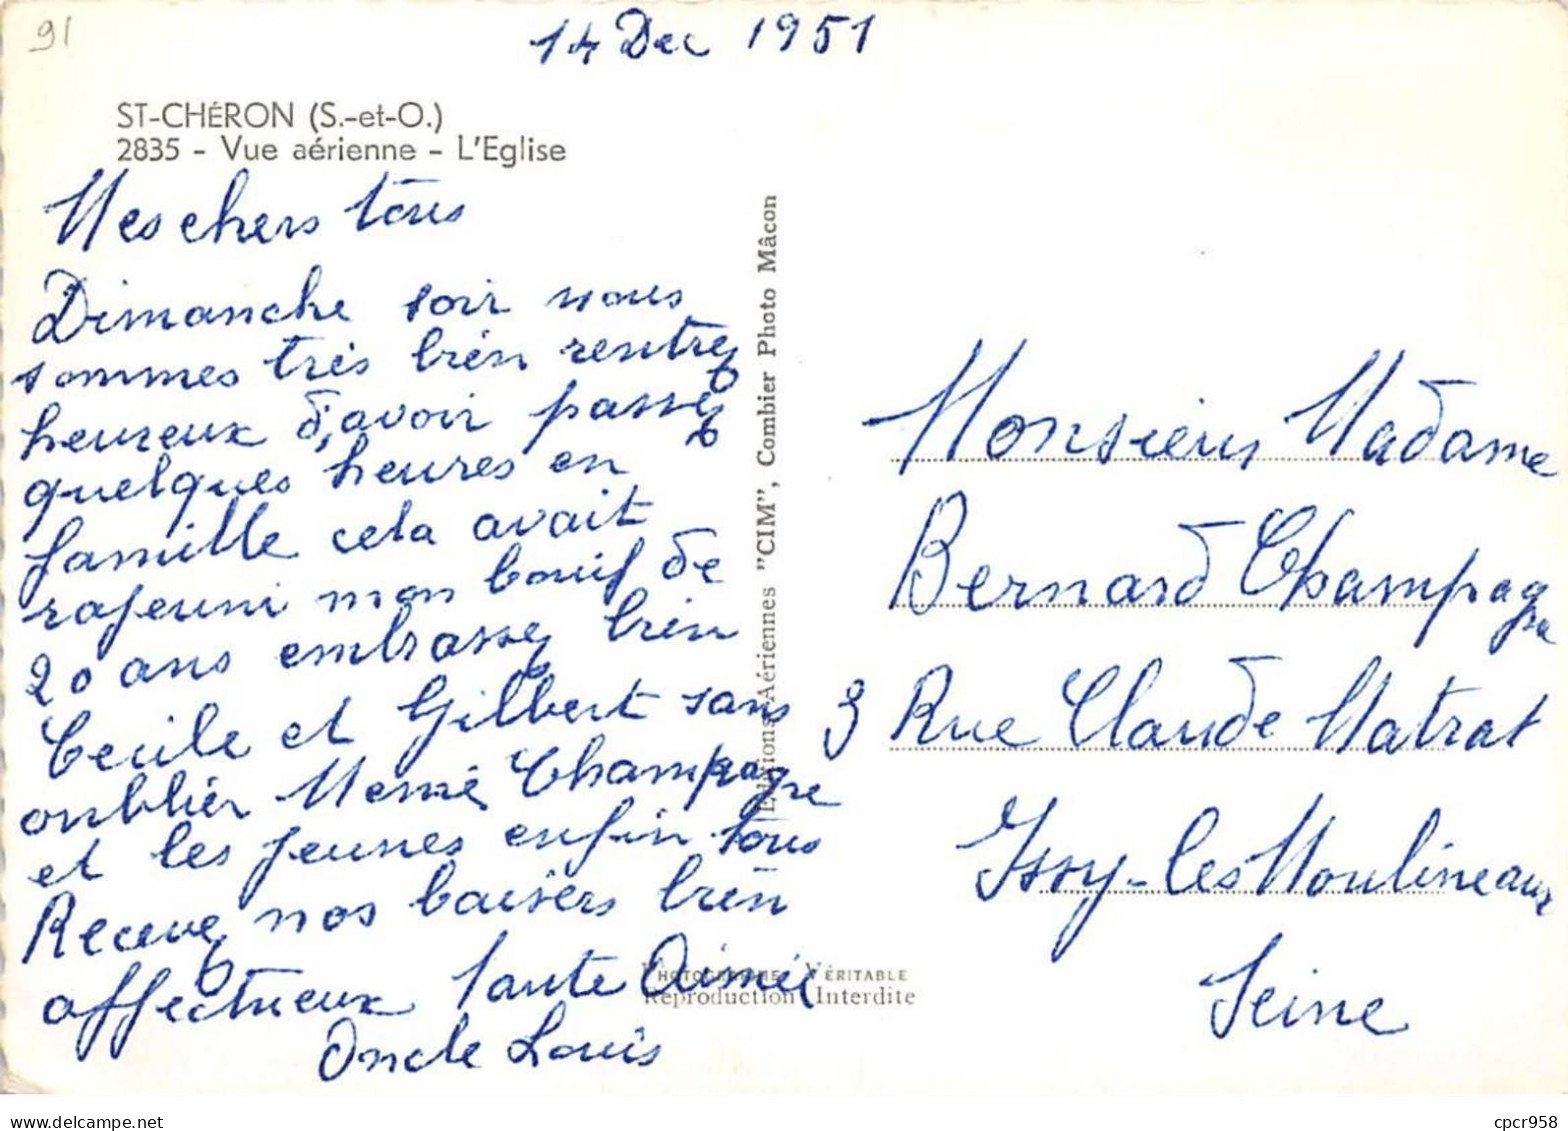 91
14 Dec 1951
ST-CHÉRON (S.-et-O.)
2835 - Vue aérienne - L'Eglise
Mes chers tous
Dimanche soir nous
sommes très bien rentrez
heureux d'avoir passez
quelques heures en
famille cela avait
rajeuni mon bouif de
20 ans embrassez bien
Cecile et Gilbert sans
oublier Memé Champagne
et les jeunes enfin tous
Recevez nos baisers bien
affectueux Tante Aimée
Oncle Louis
Editions Aériennes "CIM", Combier Photo Mâcon
PHOTOGRAPHIE VÉRITABLE
Reproduction Interdite
Monsieur Madame
Bernard Champagne
3 Rue Claude Matrat
Issy-les Moulineaux
Seine
www.delcampe.net
cpcr958